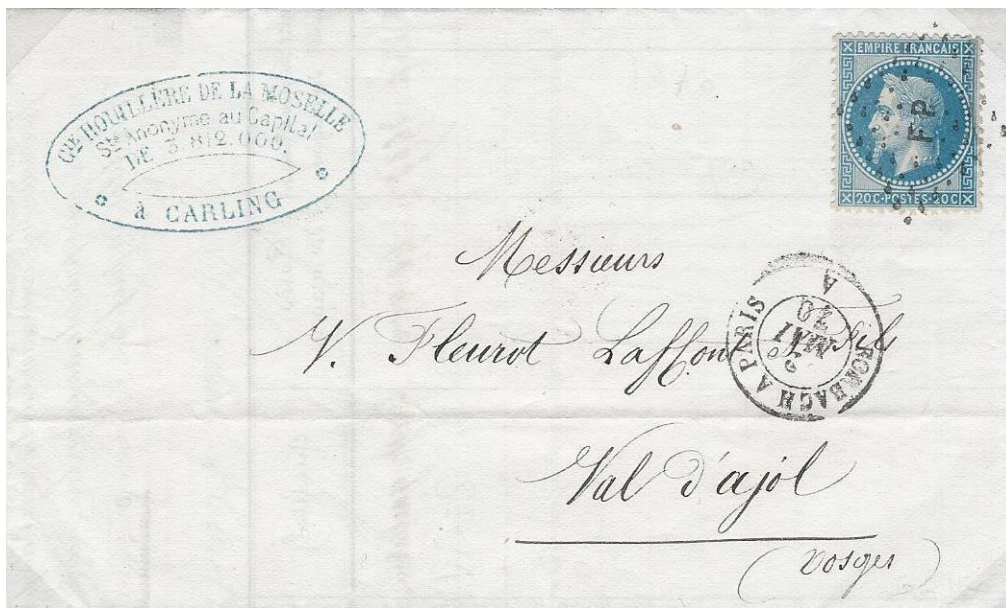 Cie HOUILLÈRE DE LA MOSELLE
Sté Anonyme au Capital
DE 3.812.000.
à CARLING
EMPIRE FRANCAIS
20C·POSTES·20C
FP
Messieurs
V. Fleurot Laffont Fils
FORBACH A PARIS
A
MAI
70
Val d'ajol
(Vosges